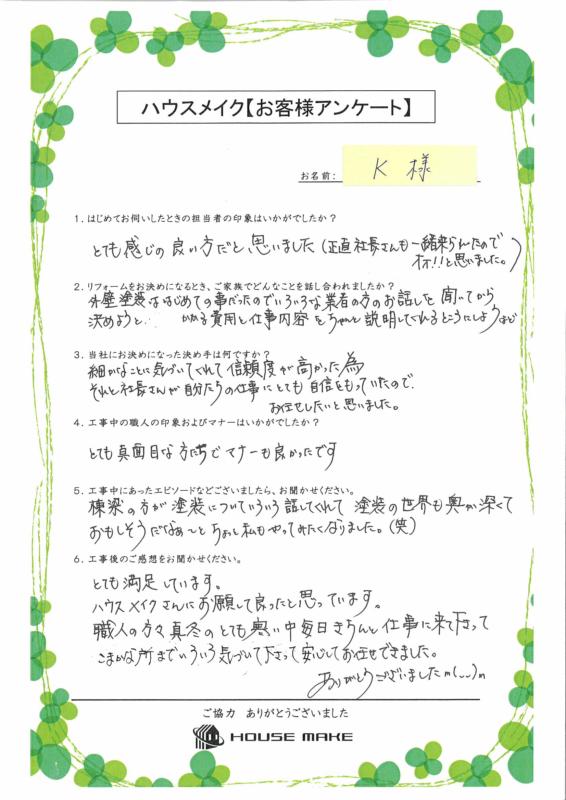 ハウスメイク【お客様アンケート】
お名前： K 様
1．はじめてお伺いしたときの担当者の印象はいかがでしたか？
とても感じの良い方だと思いました（正直社長さんも一緒来られたので
!!と思いました。）
2．リフォームをお決めになるとき、ご家族でどんなことを話し合われましたか？
外壁塗装ははじめての事だったのでいろいろな業者の方のお話しを聞いてから
決めようと… かかる費用と仕事内容をちゃんと説明してくれるところにしようなど
3．当社にお決めになった決め手は何ですか？
細かなことに気づいてくれて信頼度が高かった為
それと社長さんが自分たちの仕事にとても自信をもっていたので、
お任せしたいと思いました。
4．工事中の職人の印象およびマナーはいかがでしたか？
とても真面目な方たちでマナーも良かったです
5．工事中にあったエピソードなどございましたら、お聞かせください。
棟梁の方が塗装についていろいろ話してくれて 塗装の世界も奥が深くて
おもしそうだなぁ〜とちょっと私もやってみたくなりました。（笑）
6．工事後のご感想をお聞かせください。
とても満足しています。
ハウスメイクさんにお願して良ったと思っています。
職人の方々真冬のとても寒い中毎日きちんと仕事に来て下さって
こまかな所までいろいろ気づいて下さって安心してお任せできました。
ありがとうございましたm(_ _)m
ご協力 ありがとうございました
HOUSE MAKE